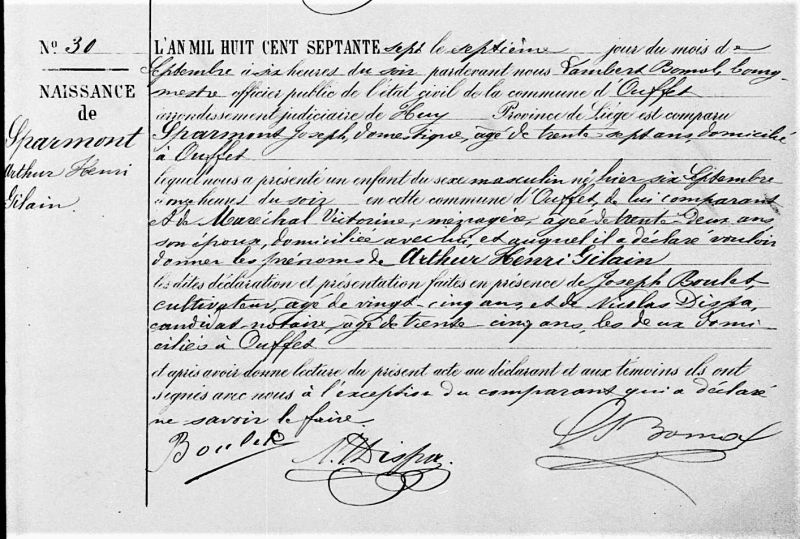 N° 30
NAISSANCE
de
Sparmont
Arthur Henri
Gilain
L'AN MIL HUIT CENT SEPTANTE sept le septième jour du mois de
Septembre à six heures du soir pardevant nous Lambert Bomal, bourg-
mestre officier public de l'état civil de la commune d'Ouffet
arrondissement judiciaire de Huy Province de Liége est comparu
Sparmont Joseph, domestique, agé de trente-sept ans, domicilié
à Ouffet
lequel nous a présenté un enfant du sexe masculin né hier six Septembre
à onze heures du soir en cette commune d'Ouffet, de lui comparant
et de Maréchal Victorine, ménagère, agée de trente deux ans
son époux, domiciliée avec lui, et auquel il a déclaré vouloir
donner les prénoms de Arthur Henri Gilain
les dites déclaration et présentation faites en présence de Joseph Boulet,
cultivateur, agé de vingt-cinq ans, et de Nicolas Dispa,
candidat-notaire, agé de trente-cinq ans, les deux domi-
ciliés à Ouffet
et après avoir donné lecture du présent acte au déclarant et aux témoins ils ont
signés avec nous à l'exception du comparant qui a déclaré
ne savoir le faire.
Boulet
Dispa.
Bomal